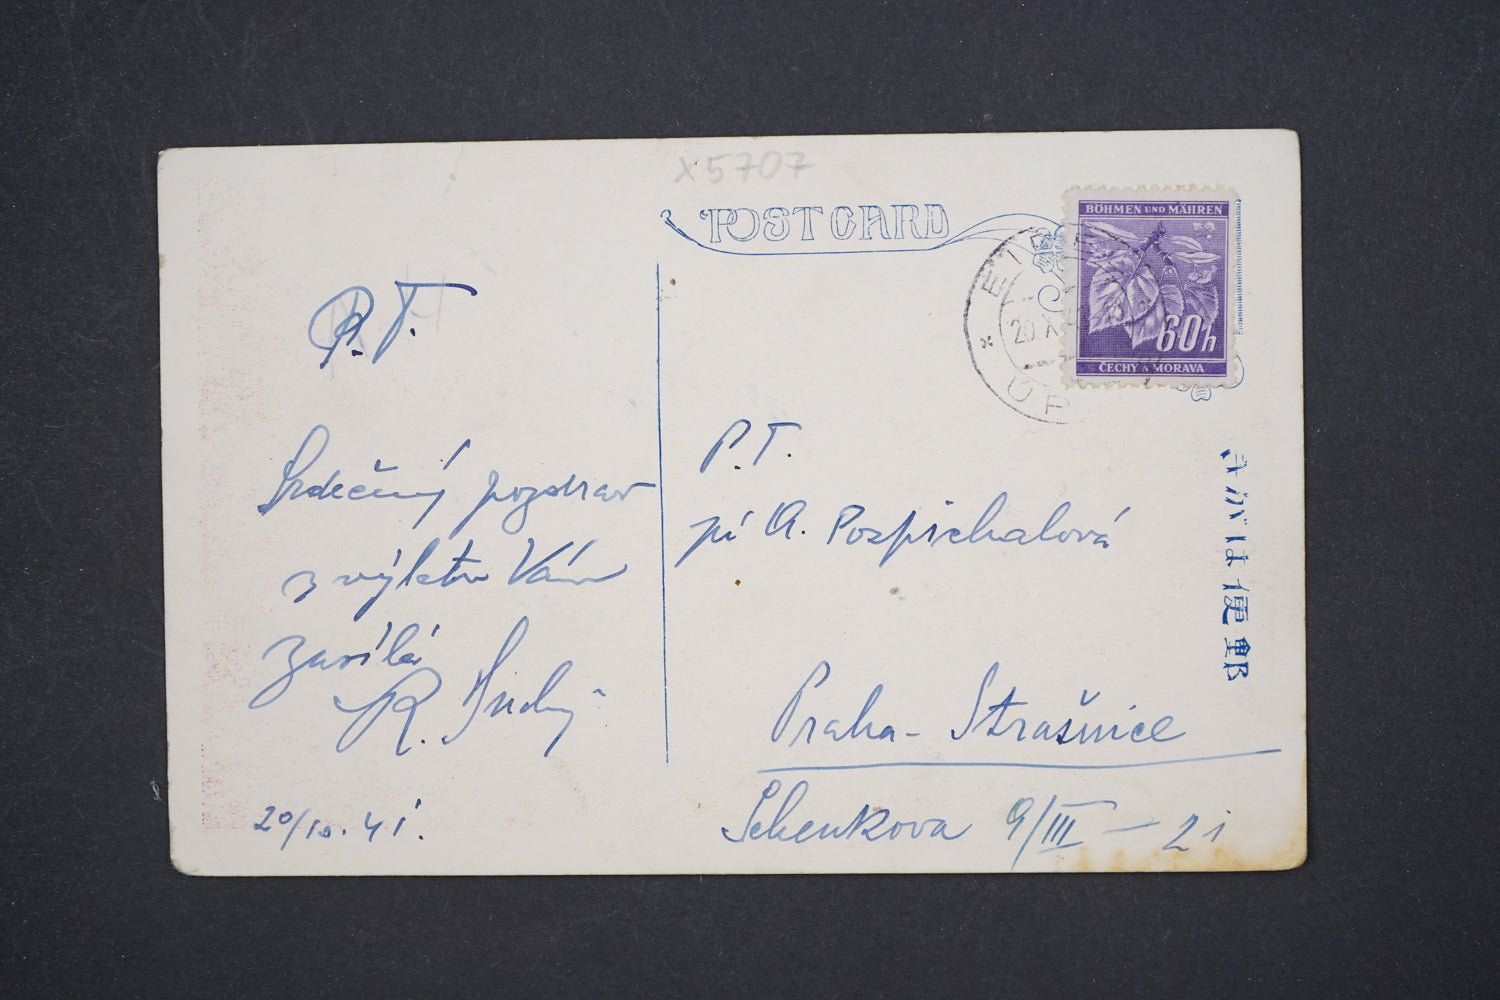 x5707
POST CARD
BÖHMEN UND MÄHREN
60h
ČECHY A MORAVA
20. X
P. T.
Srdečný pozdrav
z výletu Vám
zasílá
R.
20/10. 41.
P. T.
pí A. Pospíchalová
Praha - Strašnice
Schenkova 9/III — 21
きがは便郵